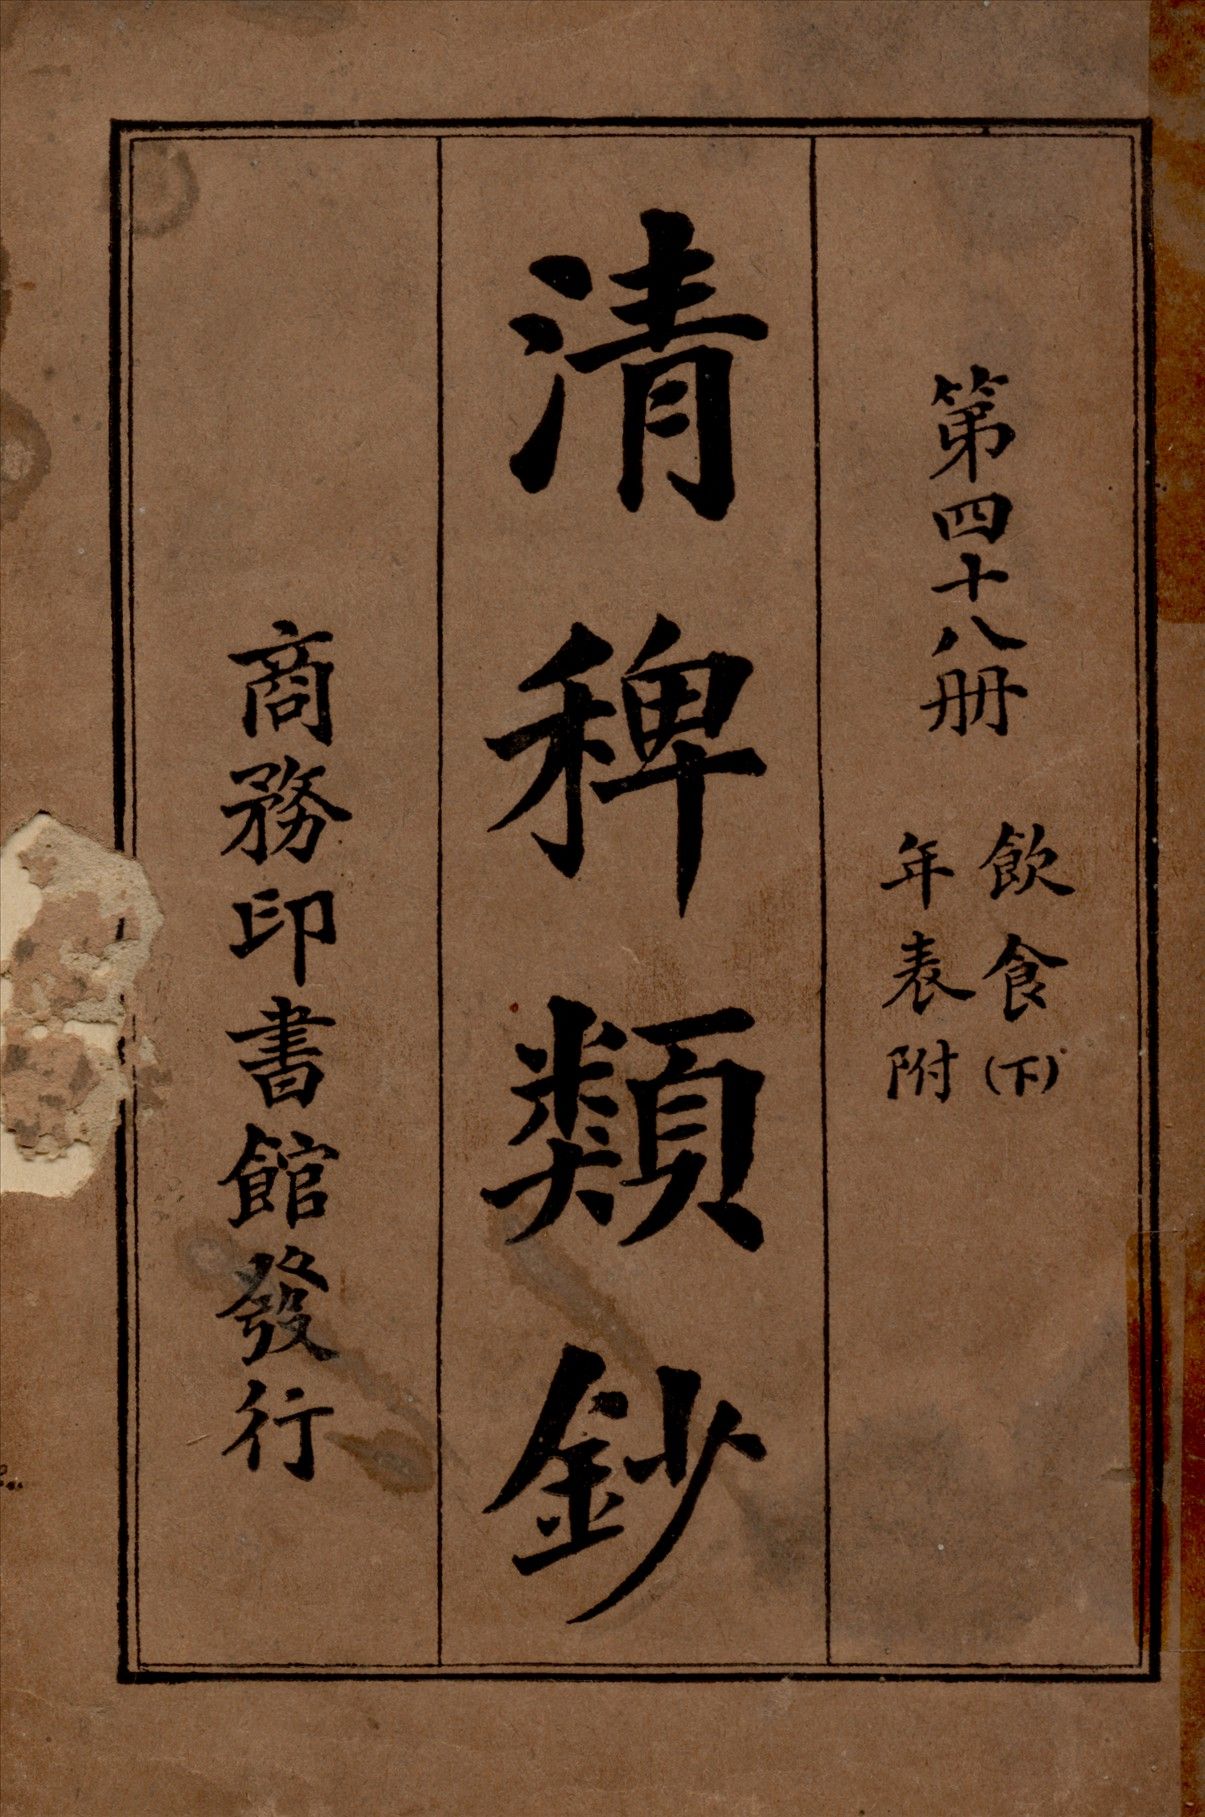 第四十八册
飲食(下)
年表附
清稗類鈔
商務印書館發行